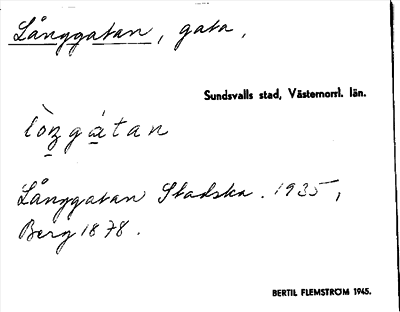 Långgatan, gata,
Sundsvalls stad, Västernorrl. län.
lòŋgátan
Långgatan Stadska. 1935,
Berg 1878.
BERTIL FLEMSTRÖM 1945.